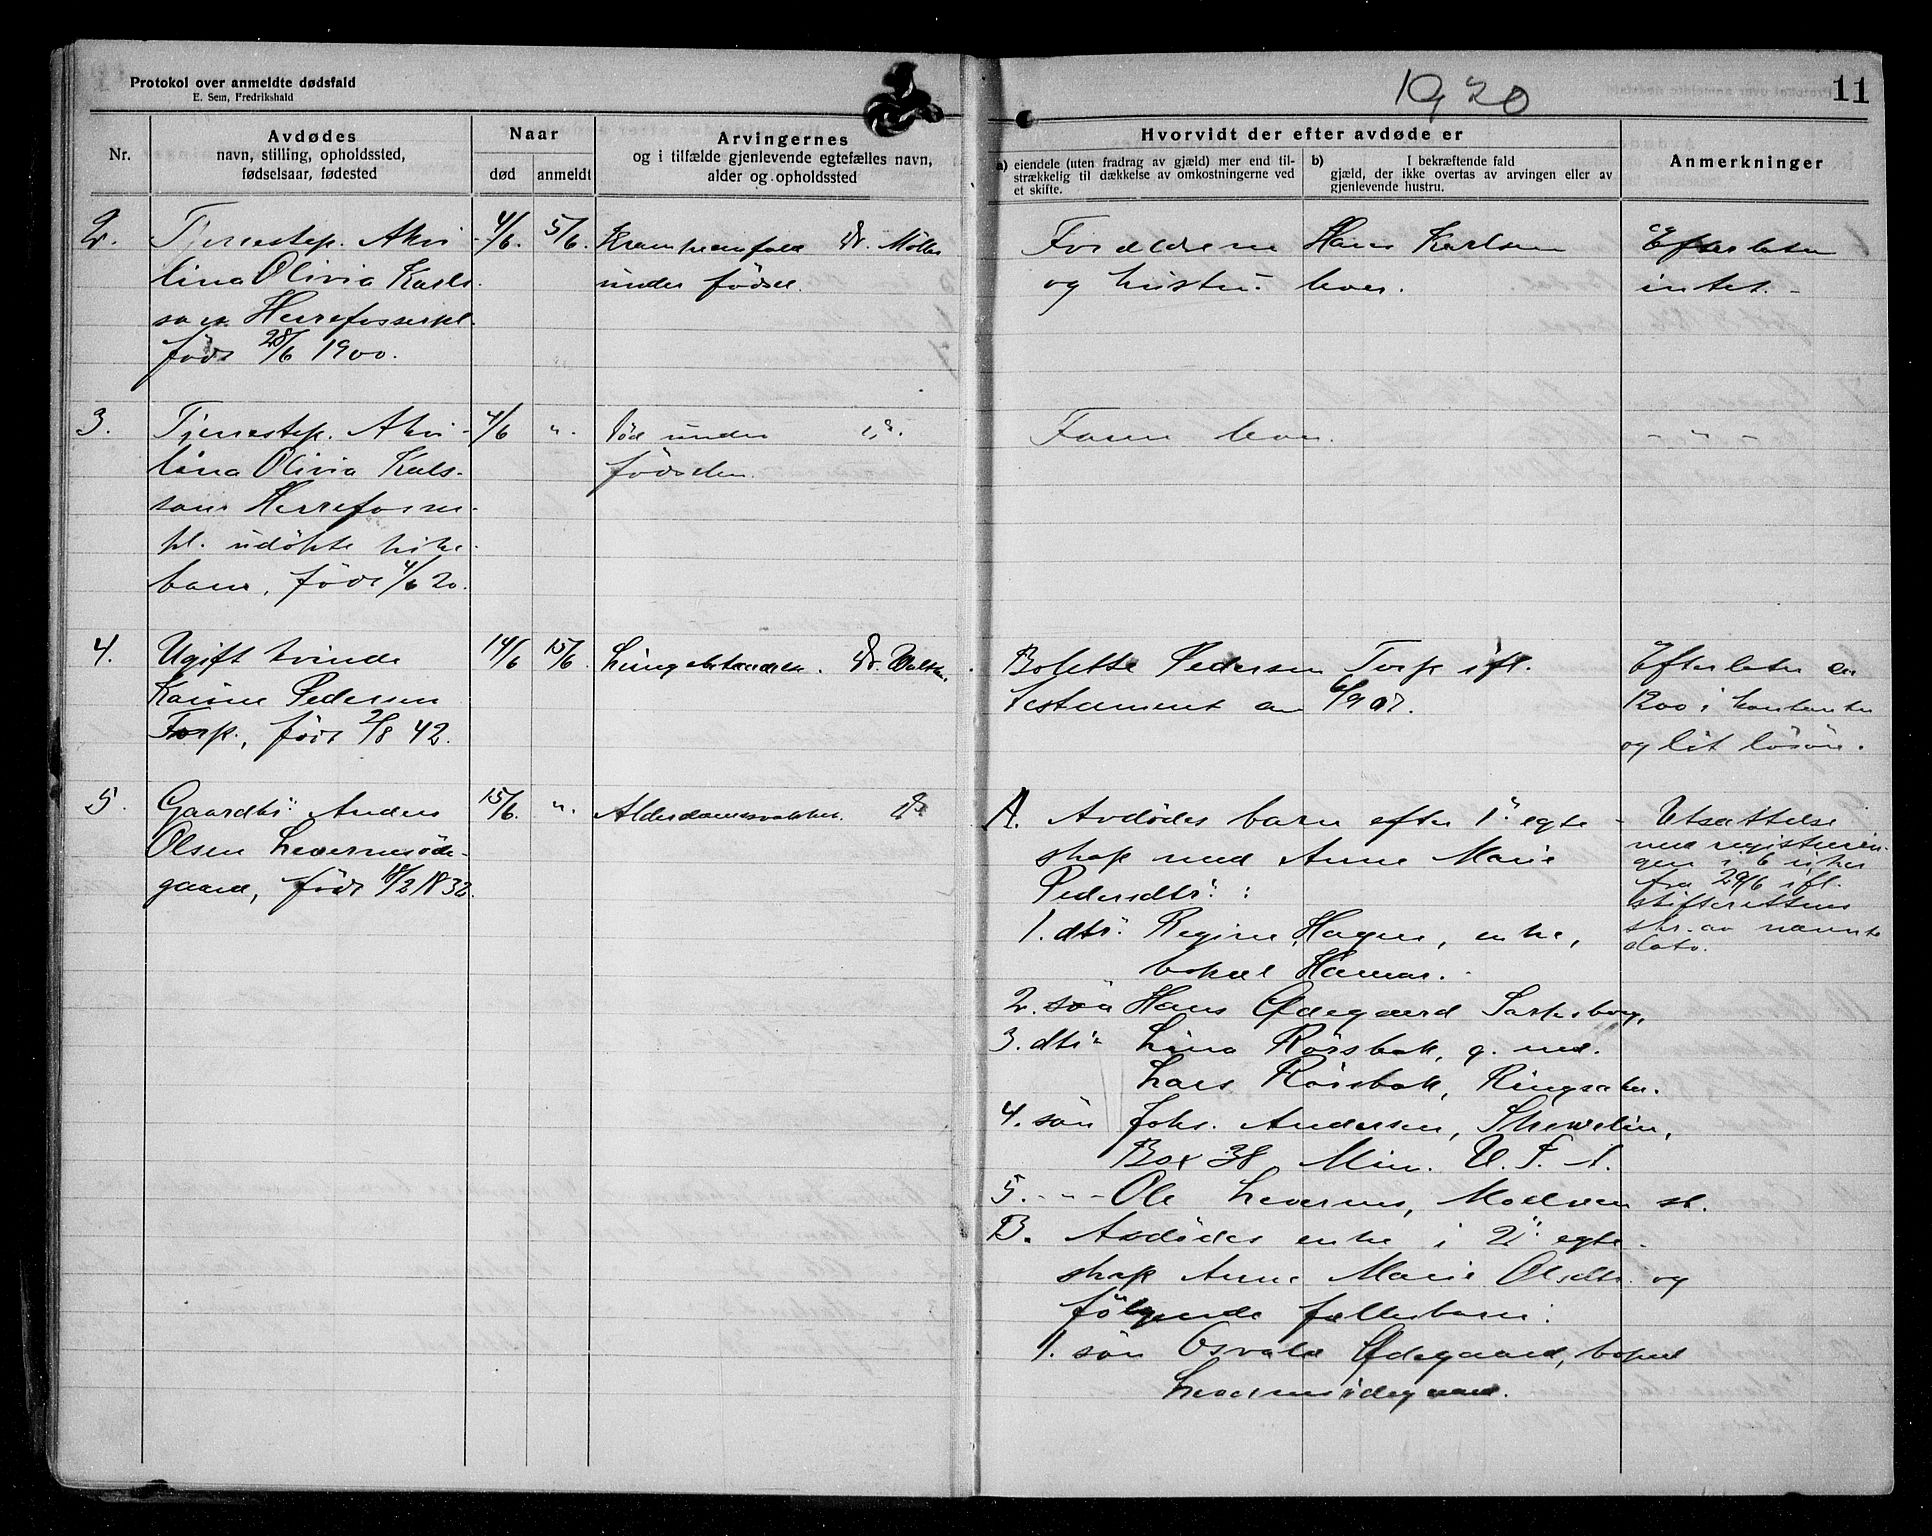 Protokol over anmeldte dødsfald
E. Sem, Fredrikshald
1920
11
Nr.
Avdødes
navn, stilling, opholdssted,
fødselsaar, fødested
Naar
død
anmeldt
Arvingernes
og i tilfælde gjenlevende egtefælles navn,
alder og opholdssted
Hvorvidt der efter avdøde er
a) eiendele (uten fradrag av gjæld) mer end til-
strækkelig til dækkelse av omkostningerne ved
et skifte.
b) I bekræftende fald
gjæld, der ikke overtas av arvingen eller av
gjenlevende hustru.
Anmerkninger
2.
Tjenestep. Akvi
lina Olivia Karls
sen. Herrefosserpl.
født 28/6 1900.
4/6.
5/6.
Krampeanfald Dr. Møller
under fødsel.
Forældrene Hans Karlsen
og hustru. her.
Efterlater
intet.
3.
Tjenestep. Akvi-
lina Olivia Karls-
sens Herrefosser-
pl. udøpte pike-
barn, født 4/6 20.
4/6
".
død under
fødselen.
Faren her.
- " -
4.
Ugift kvinde
Karine Pedersen
Torp, født 2/8 42.
14/6
15/6.
Lungebetændelse. Dr.
Bolette Pedersen Torp ifl.
testament av 6/9 07.
Efterlater ca
1200 i kontanter
og lit løsøre.
5.
Gaardbr. Anders
Olsen Levernesøde-
gaard, født 18/2 1832.
15/6.
".
Alderdomssvakhet. Dr
A. Avdødes barn efter 1. egte-
skap med Anne Marie
Pedersdtr. :
1. dtr. Regine Hagen, enke,
bopæl Hamar.
2. søn Hans Ødegaard Sarpsborg.
3. dtr. Lina Rörsbak, g. med
Lars Rörsbak, Ringsaker.
4. søn Johs. Andersen,
Box 38 Min. U. S. A.
5. - " - Ole Levernes, Moelven st.
B. Avdødes enke i 2. egte-
skap Anne Marie Olsdtr. og
følgende fællesbarn:
1. søn Osvald Ødegaard, bopæl
Levernesødegaard.
Utsættelse
med registrerin-
gen i 6 uker
fra 29/6 ifl.
skifterettens
skr. av nævnte
dato.